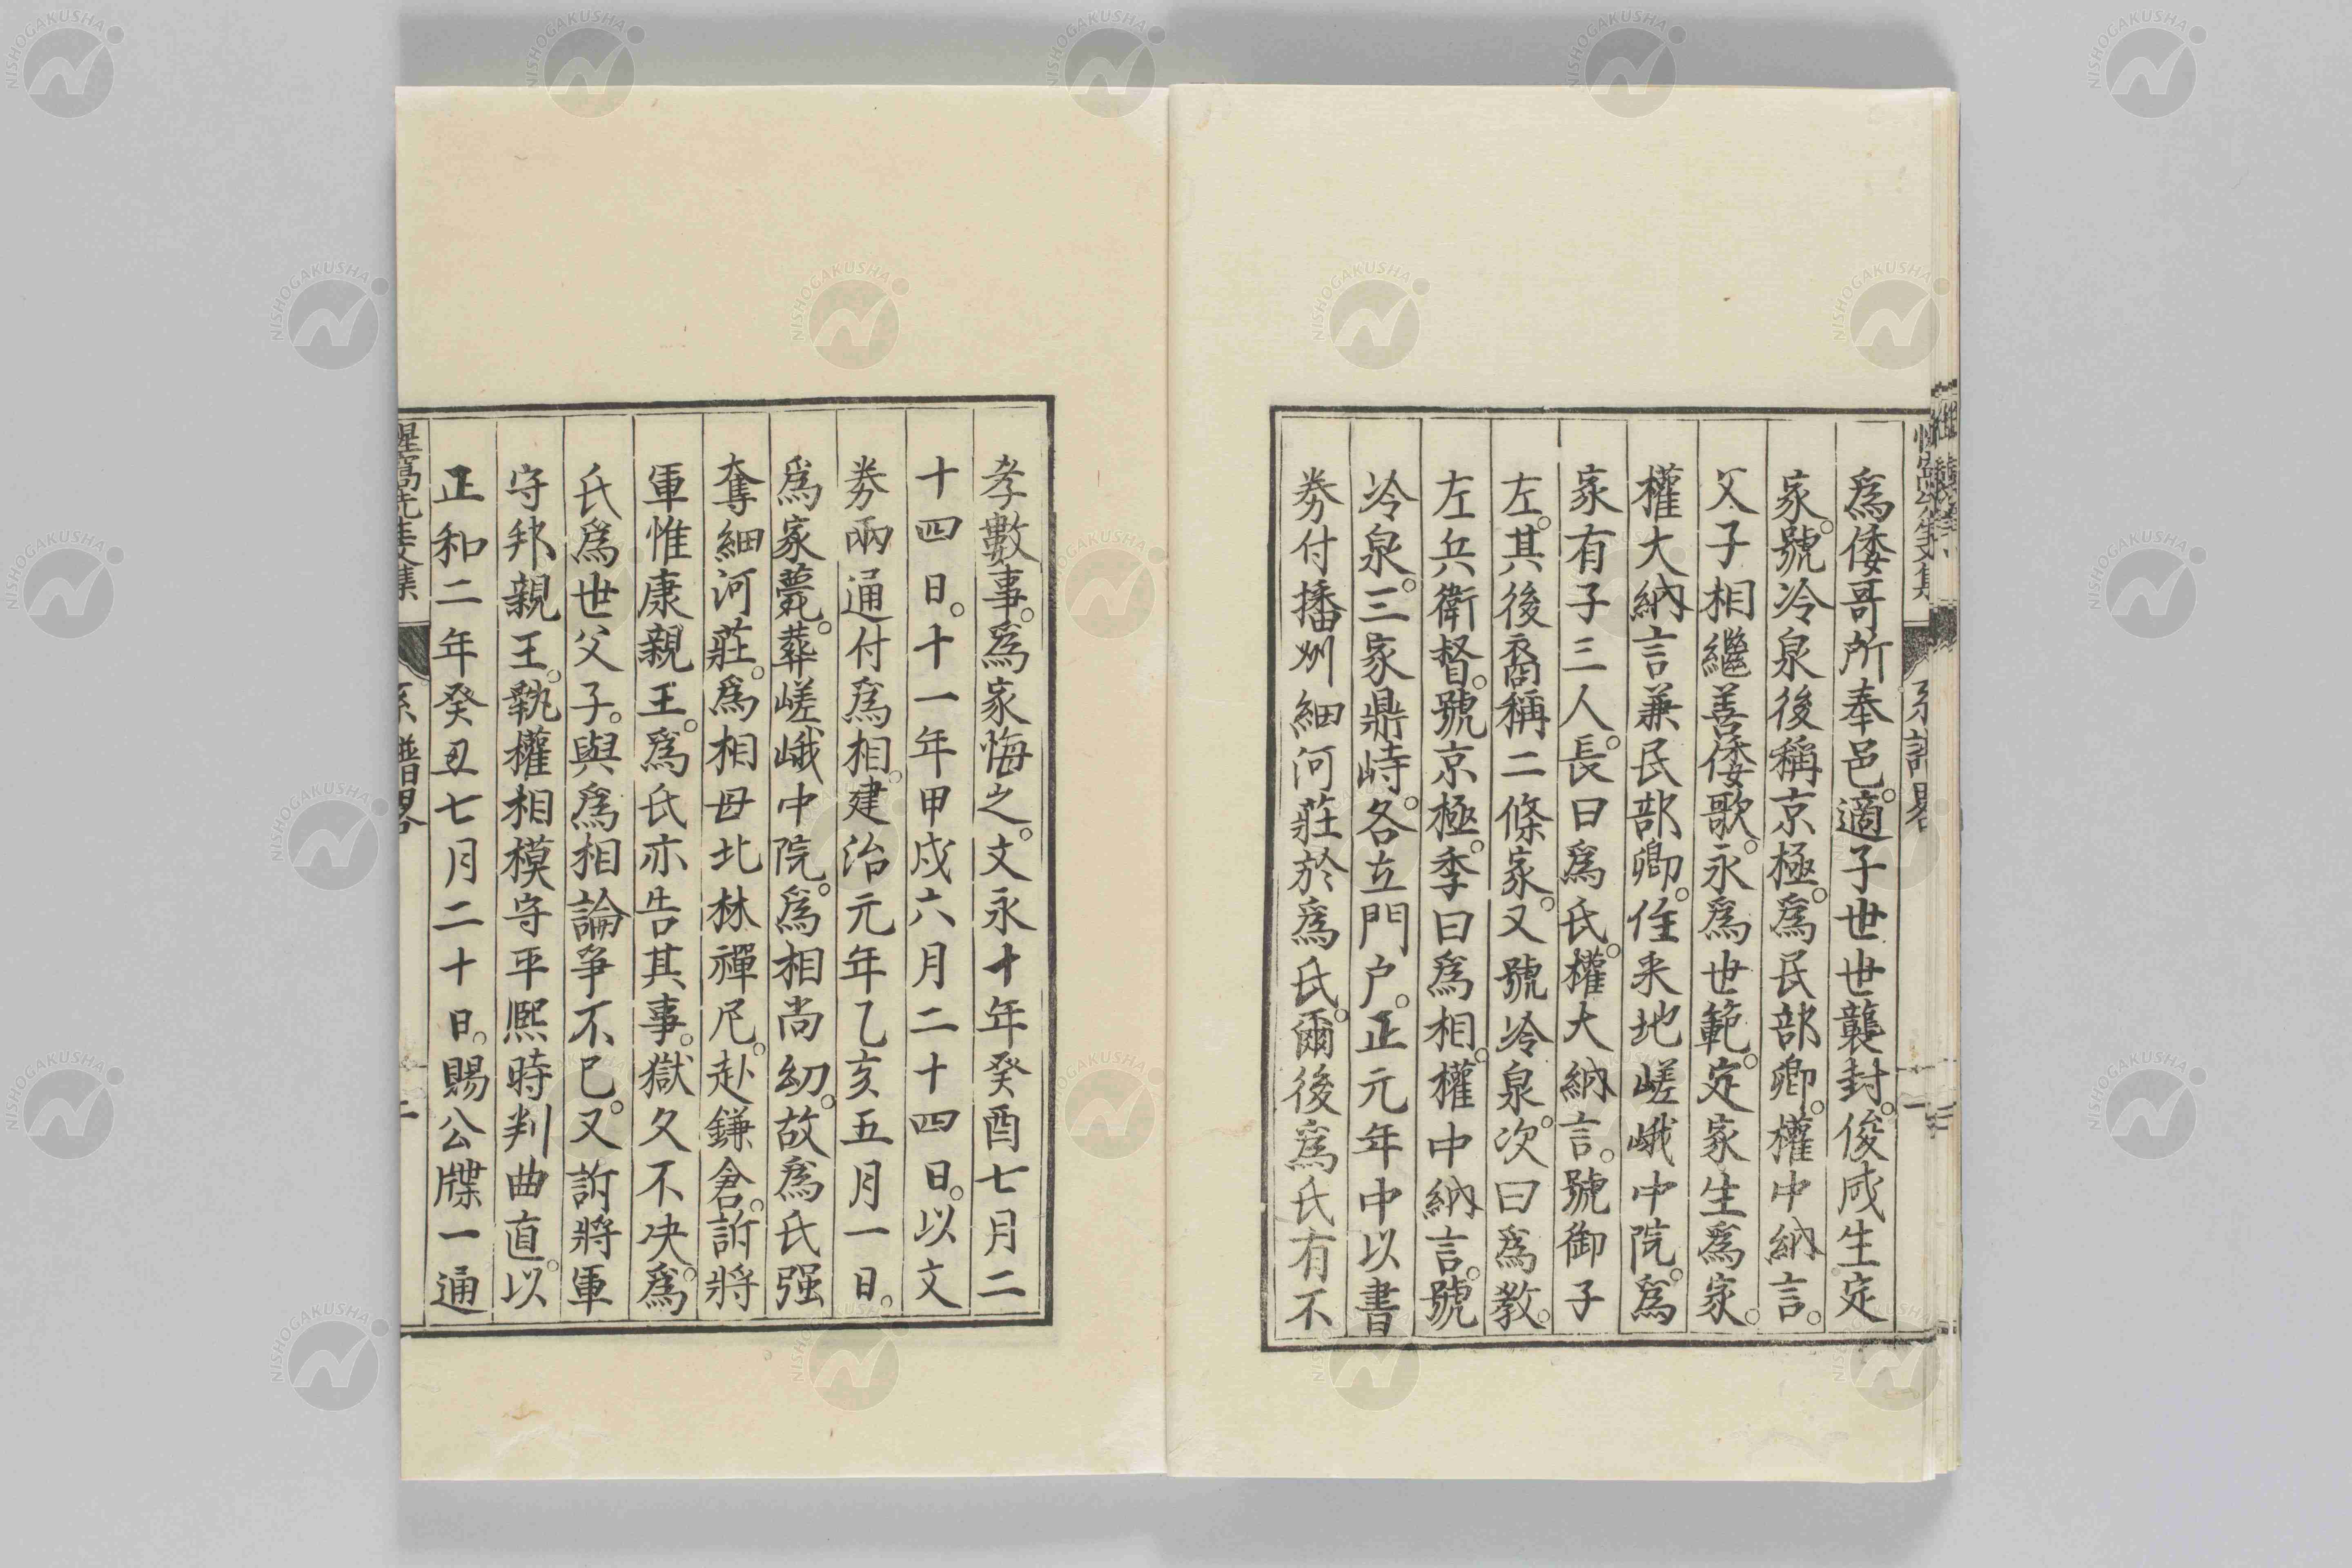 爲倭哥所奉邑。適子世世襲封。俊成生定
家。號冷泉後稱京極。爲民部卿。權中納言。
父子相繼善倭歌。永爲世範。定家生爲家。
權大納言兼民部卿。住来地嵯峨中院。爲
家有子三人。長曰爲氏。權大納言。號御子
左。其後裔稱二條家。又號冷泉。次曰爲教。
左兵衛督。號京極。季曰爲相。權中納言。號
冷泉。三家鼎峙。各立門戸。正元年中以書
券付播州細河莊於爲氏。爾後爲氏有不
孝數事。爲家悔之。文永十年癸酉七月二
十四日。十一年甲戌六月二十四日。以文
券兩通付爲相。建治元年乙亥五月一日。
爲家薨。葬嵯峨中院。爲相尚幼。故爲氏强
奪細河莊。爲相母北林禪尼。赴鎌倉。訴將
軍惟康親王。爲氏亦告其事。獄久不决。爲
氏爲世父子。與爲相論爭不已。又訴將軍
守邦親王。執權相模守平熙時判曲直。以
正和二年癸丑七月二十日。賜公牒一通
惺窩先生文集 系譜畧 二